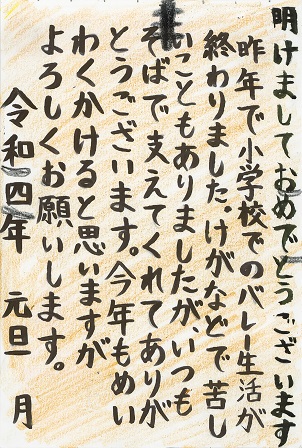 明けましておめでとうございます
昨年で小学校でのバレー生活が
終わりました。けがなどで苦し
いこともありましたが、いつも
そばで支えてくれてありが
とうございます。今年もめい
わくかけると思いますが
よろしくお願いします。
令和四年 元旦 月